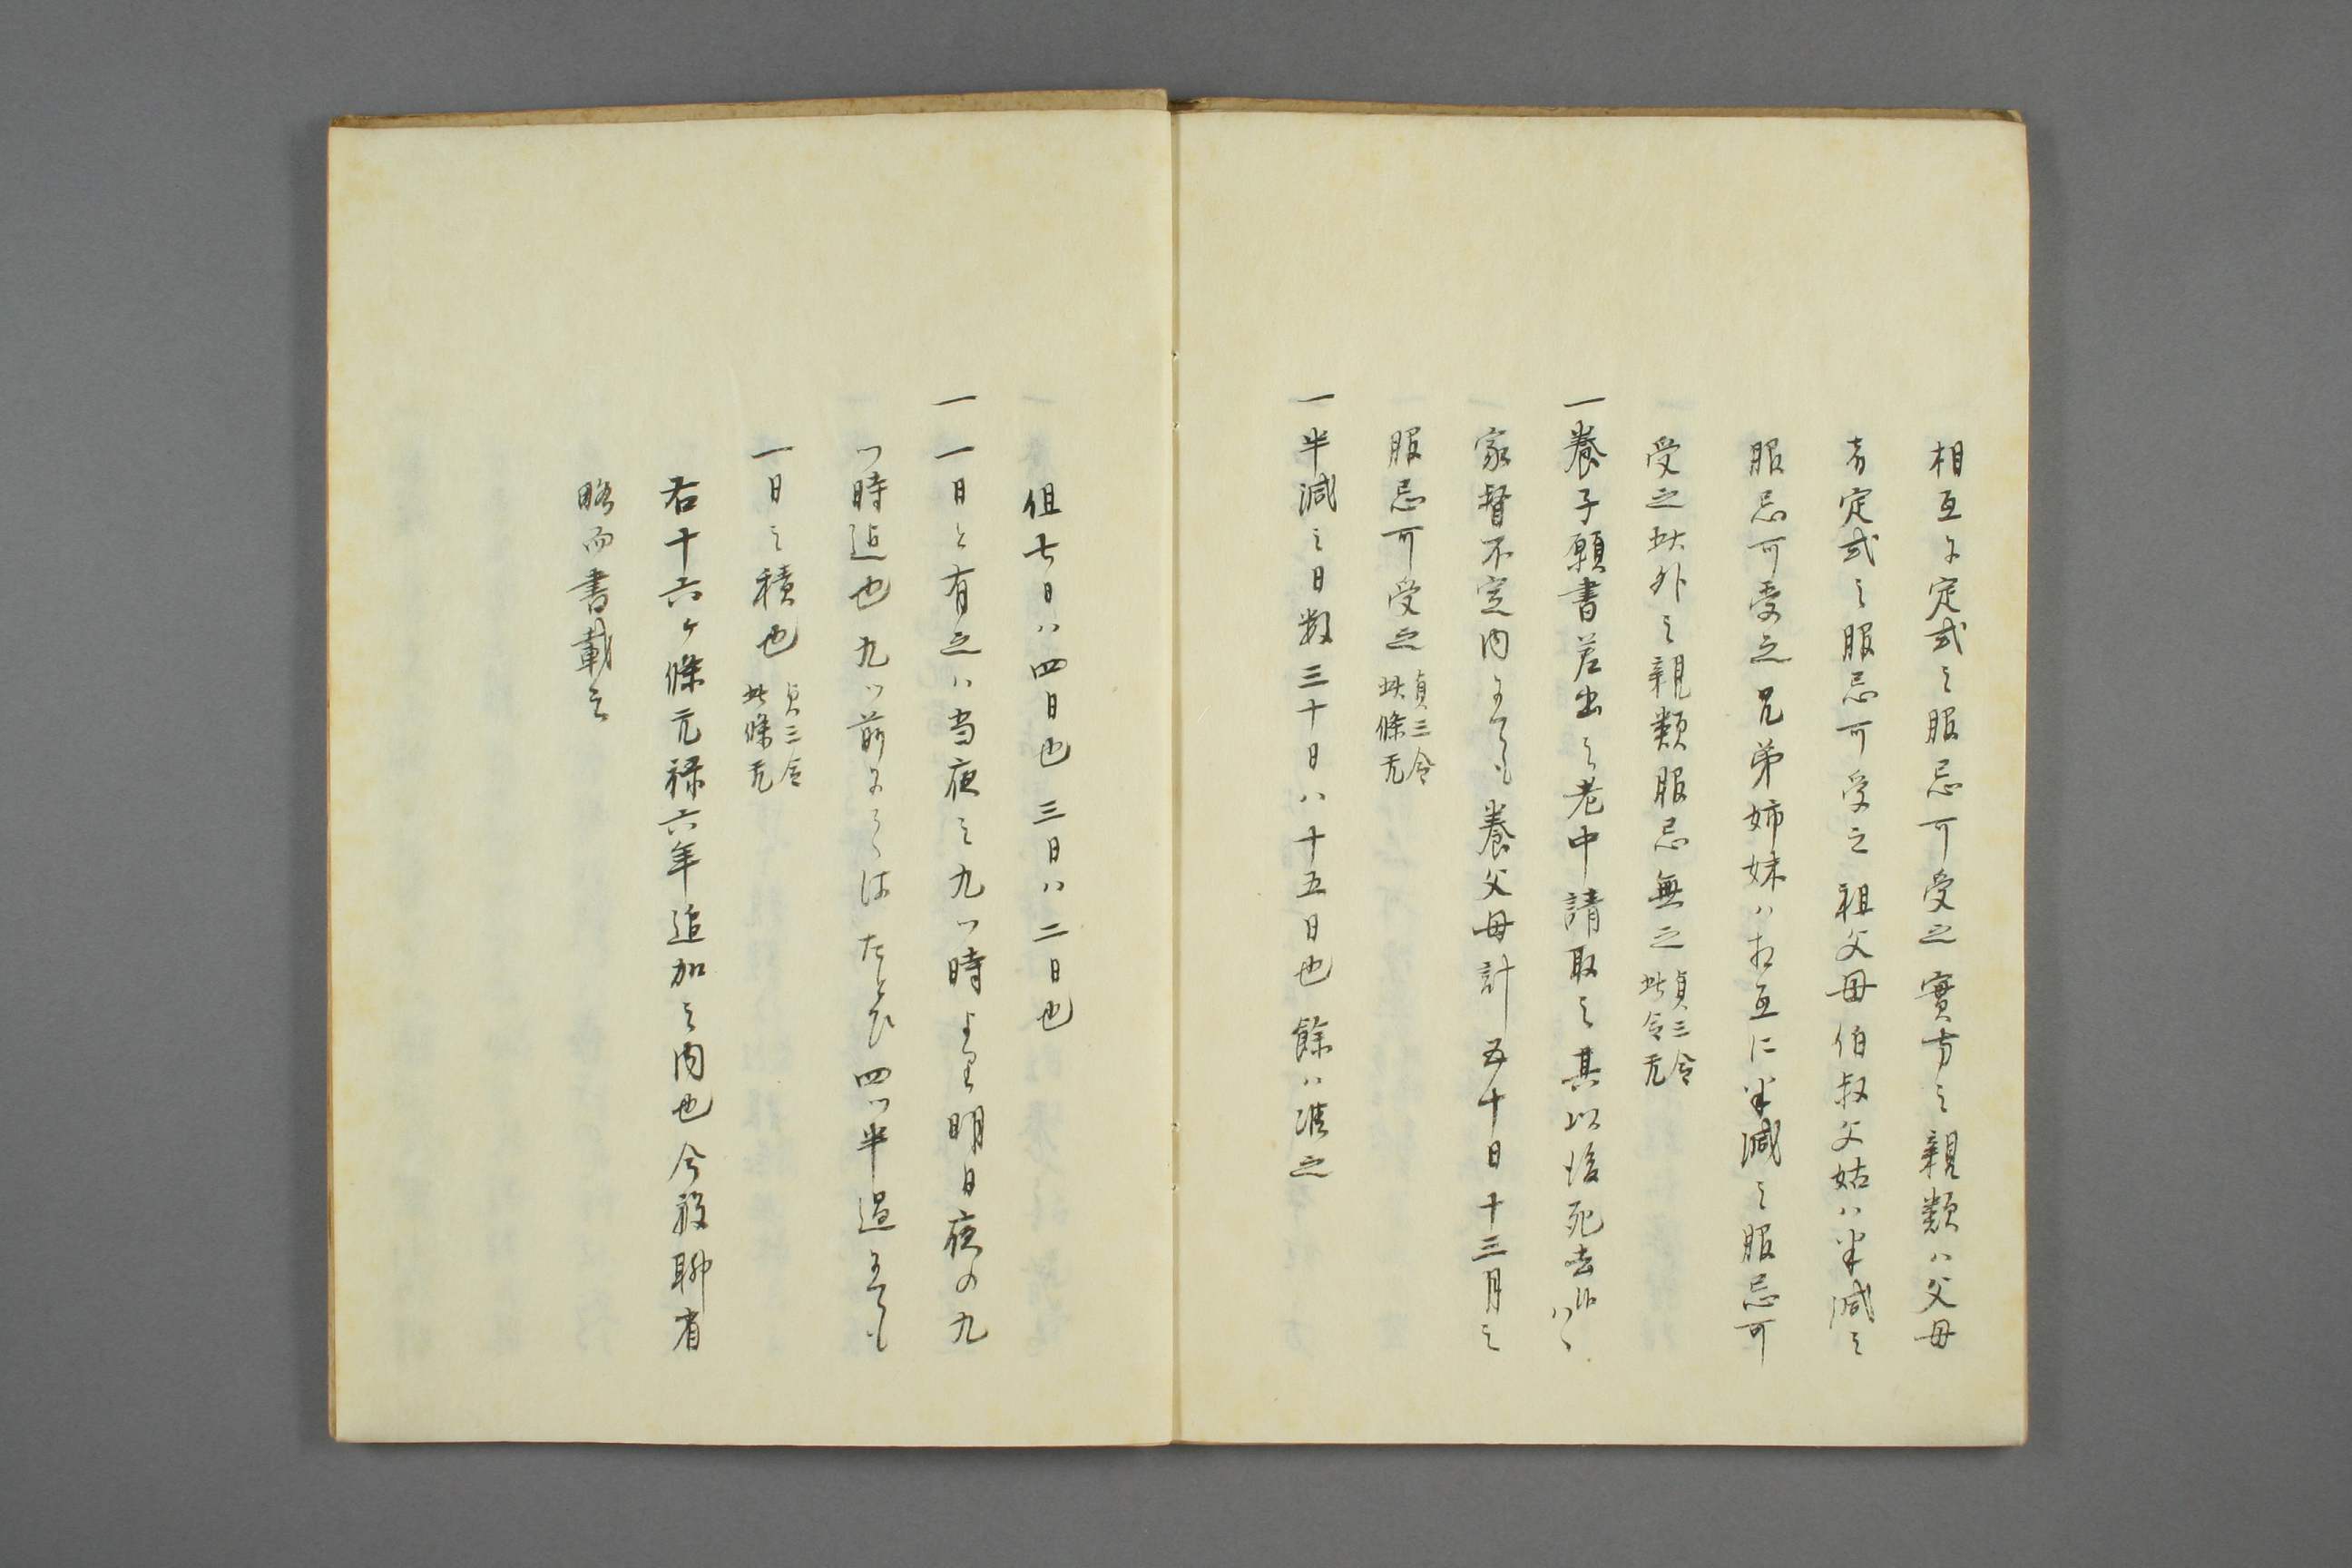 相互に定式之服忌可受之實方之親類ハ父母
者定式之服忌可受之祖父母伯叔父姑ハ半減之
服忌可受之兄弟姉妹ハ相互に半減之服忌可
受之此外之親類服忌無之貞三令此令无
一養子願書差出之老中請取之其以後死去候ハヽ
家督不定内にても養父母計五十日十三月之
服忌可受之貞三令此條无
一半減之日数三十日ハ十五日也餘ハ准之
但七日ハ四日也三日ハ二日也
一一日と有之ハ当夜之九ツ時より明日夜の九
ツ時迠也九ツ前にてはたとひ四ツ半過にても
一日之積也貞三令此條无
右十六ヶ條元禄六年追加之内也今般聊省
略而書載之